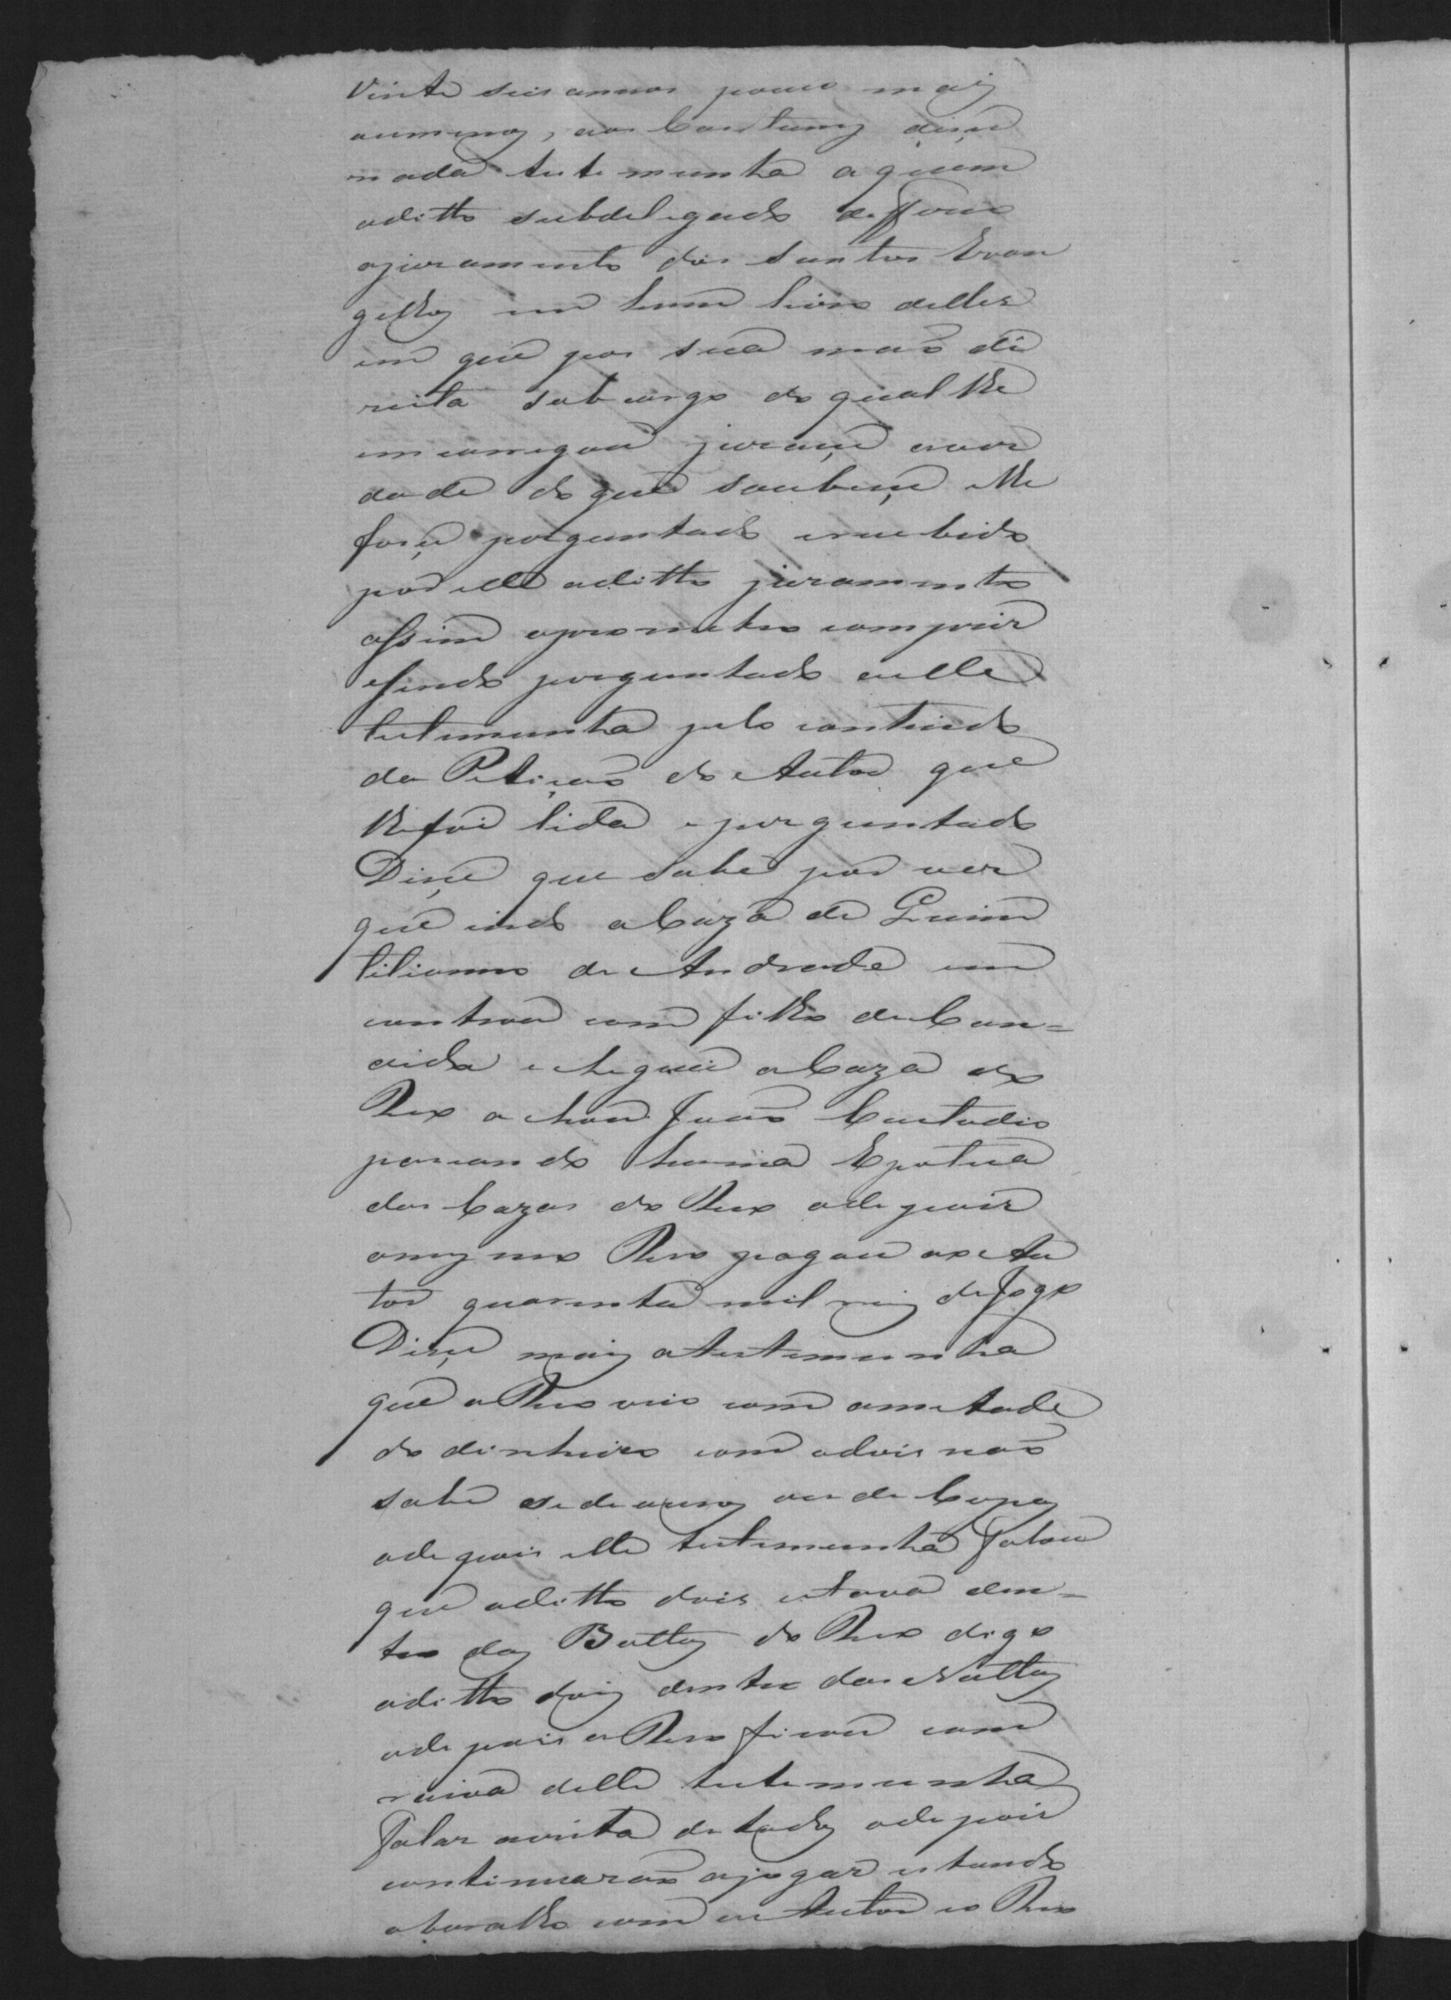 Vinte seis annos pouco mais
aumenos, aos Custumes disse
nada testemunha a quem
aditto subdelegado deffirio
ojuramento dos Santos Evan
gelhos em hum livro delles
em que pos sua mão di
reita sob cargo do qual lhe
emcarregou jurace aver
dade do que soubeçe elhe
foçe perguntado erecebido
por elle aditto juramento
assim oprometeo comprir
esendo perguntado aelle
testemunha pelo contiudo
da Petição do Autor que
lhe foi lida e perguntado
Diçe que sabe por ver
que indo a Caza de Quin
tilianno de Andrade em
controu com filho de Can=
dido e chegou a Caza do
Reo achou João Custodio
passando huma Epoteca
das Cazas do Reo adepois
omesmo Reo pagou ao Au
tor quarenta mil reis de Jogo
Diçe mais atestemunha
que o Reo veio com ametade
do dinheiro com adois não
sabe se de ouros ou de Copas
adepois elle testemunha Falou
que aditto dois estava den=
tro das Bottas do Reo digo
aditto dois dentro das Nottas
adepois o Reo ficou com
raiva delle testemunha
Falar avista de todos adepois
continuarão ajogar estando
obaralho com o Autor eo Reo